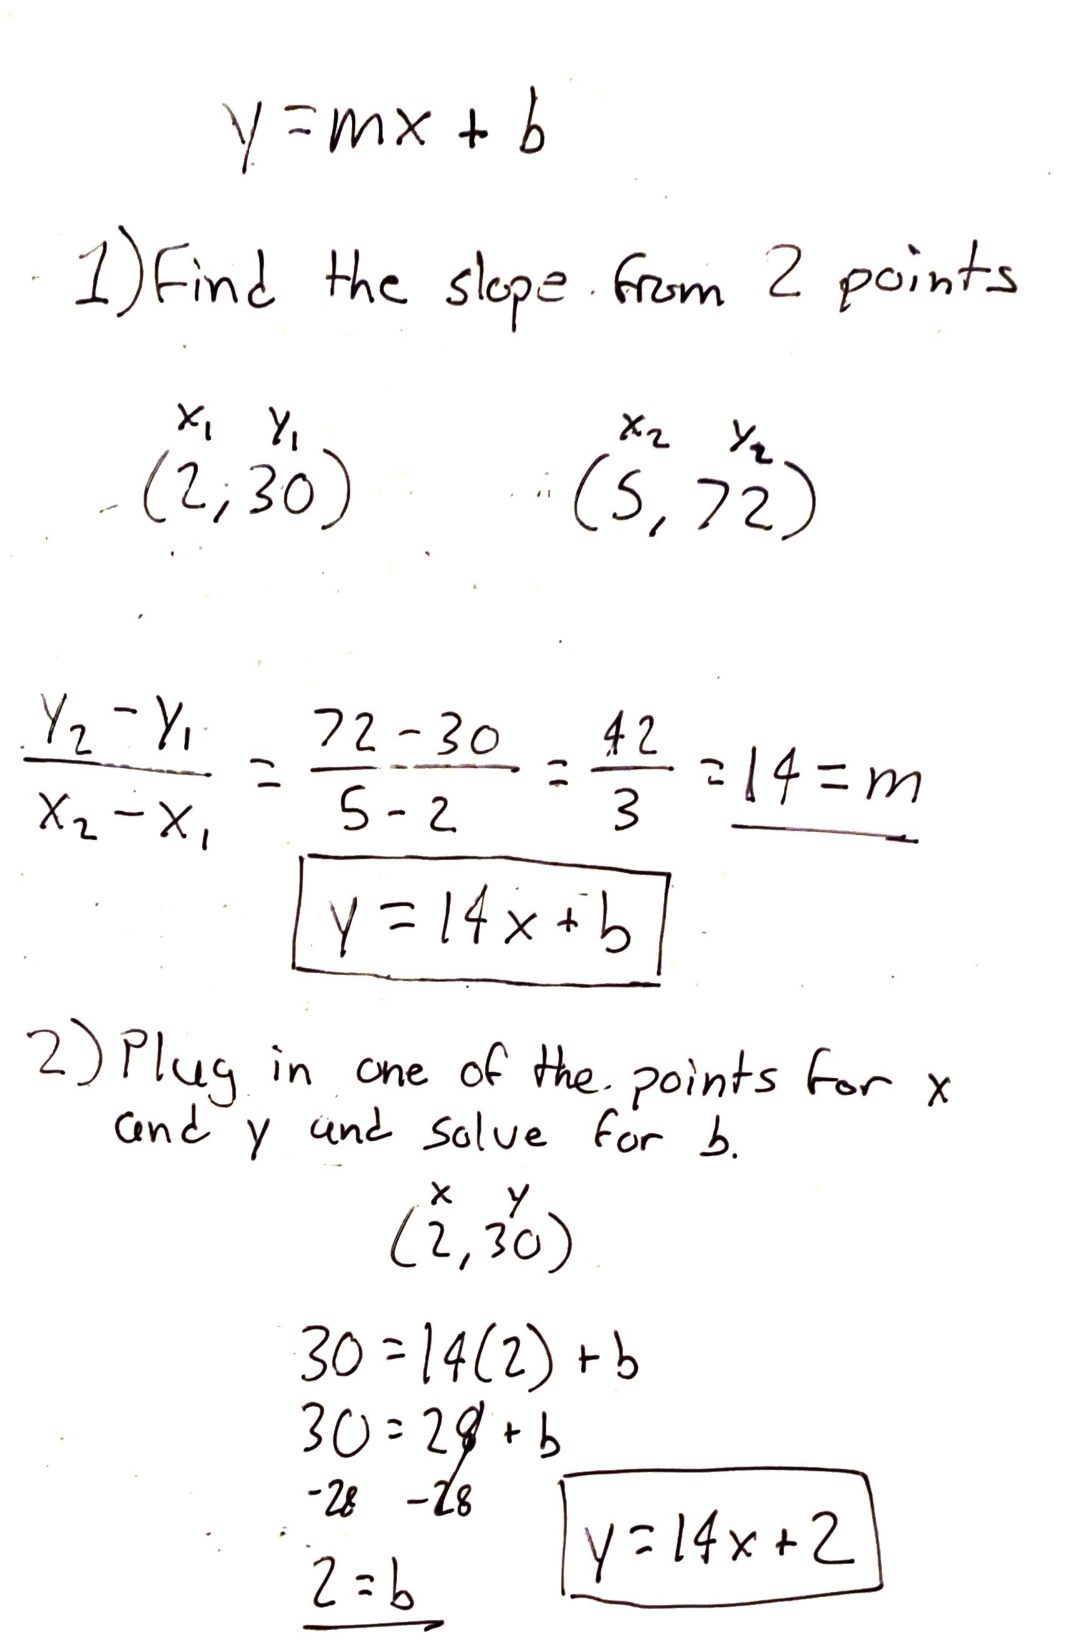 y = mx + b
1) Find the slope from 2 points
x₁ y₁ x₂ y₂
(2, 30) (5, 72)
y₂ - y₁ / x₂ - x₁ = 72 - 30 / 5 - 2 = 42 / 3 = 14 = m
y = 14x + b
2) Plug in one of the points for x
and y and solve for b.
x y
(2, 30)
30 = 14(2) + b
30 = 28 + b
-28 -28
2 = b
y = 14x + 2